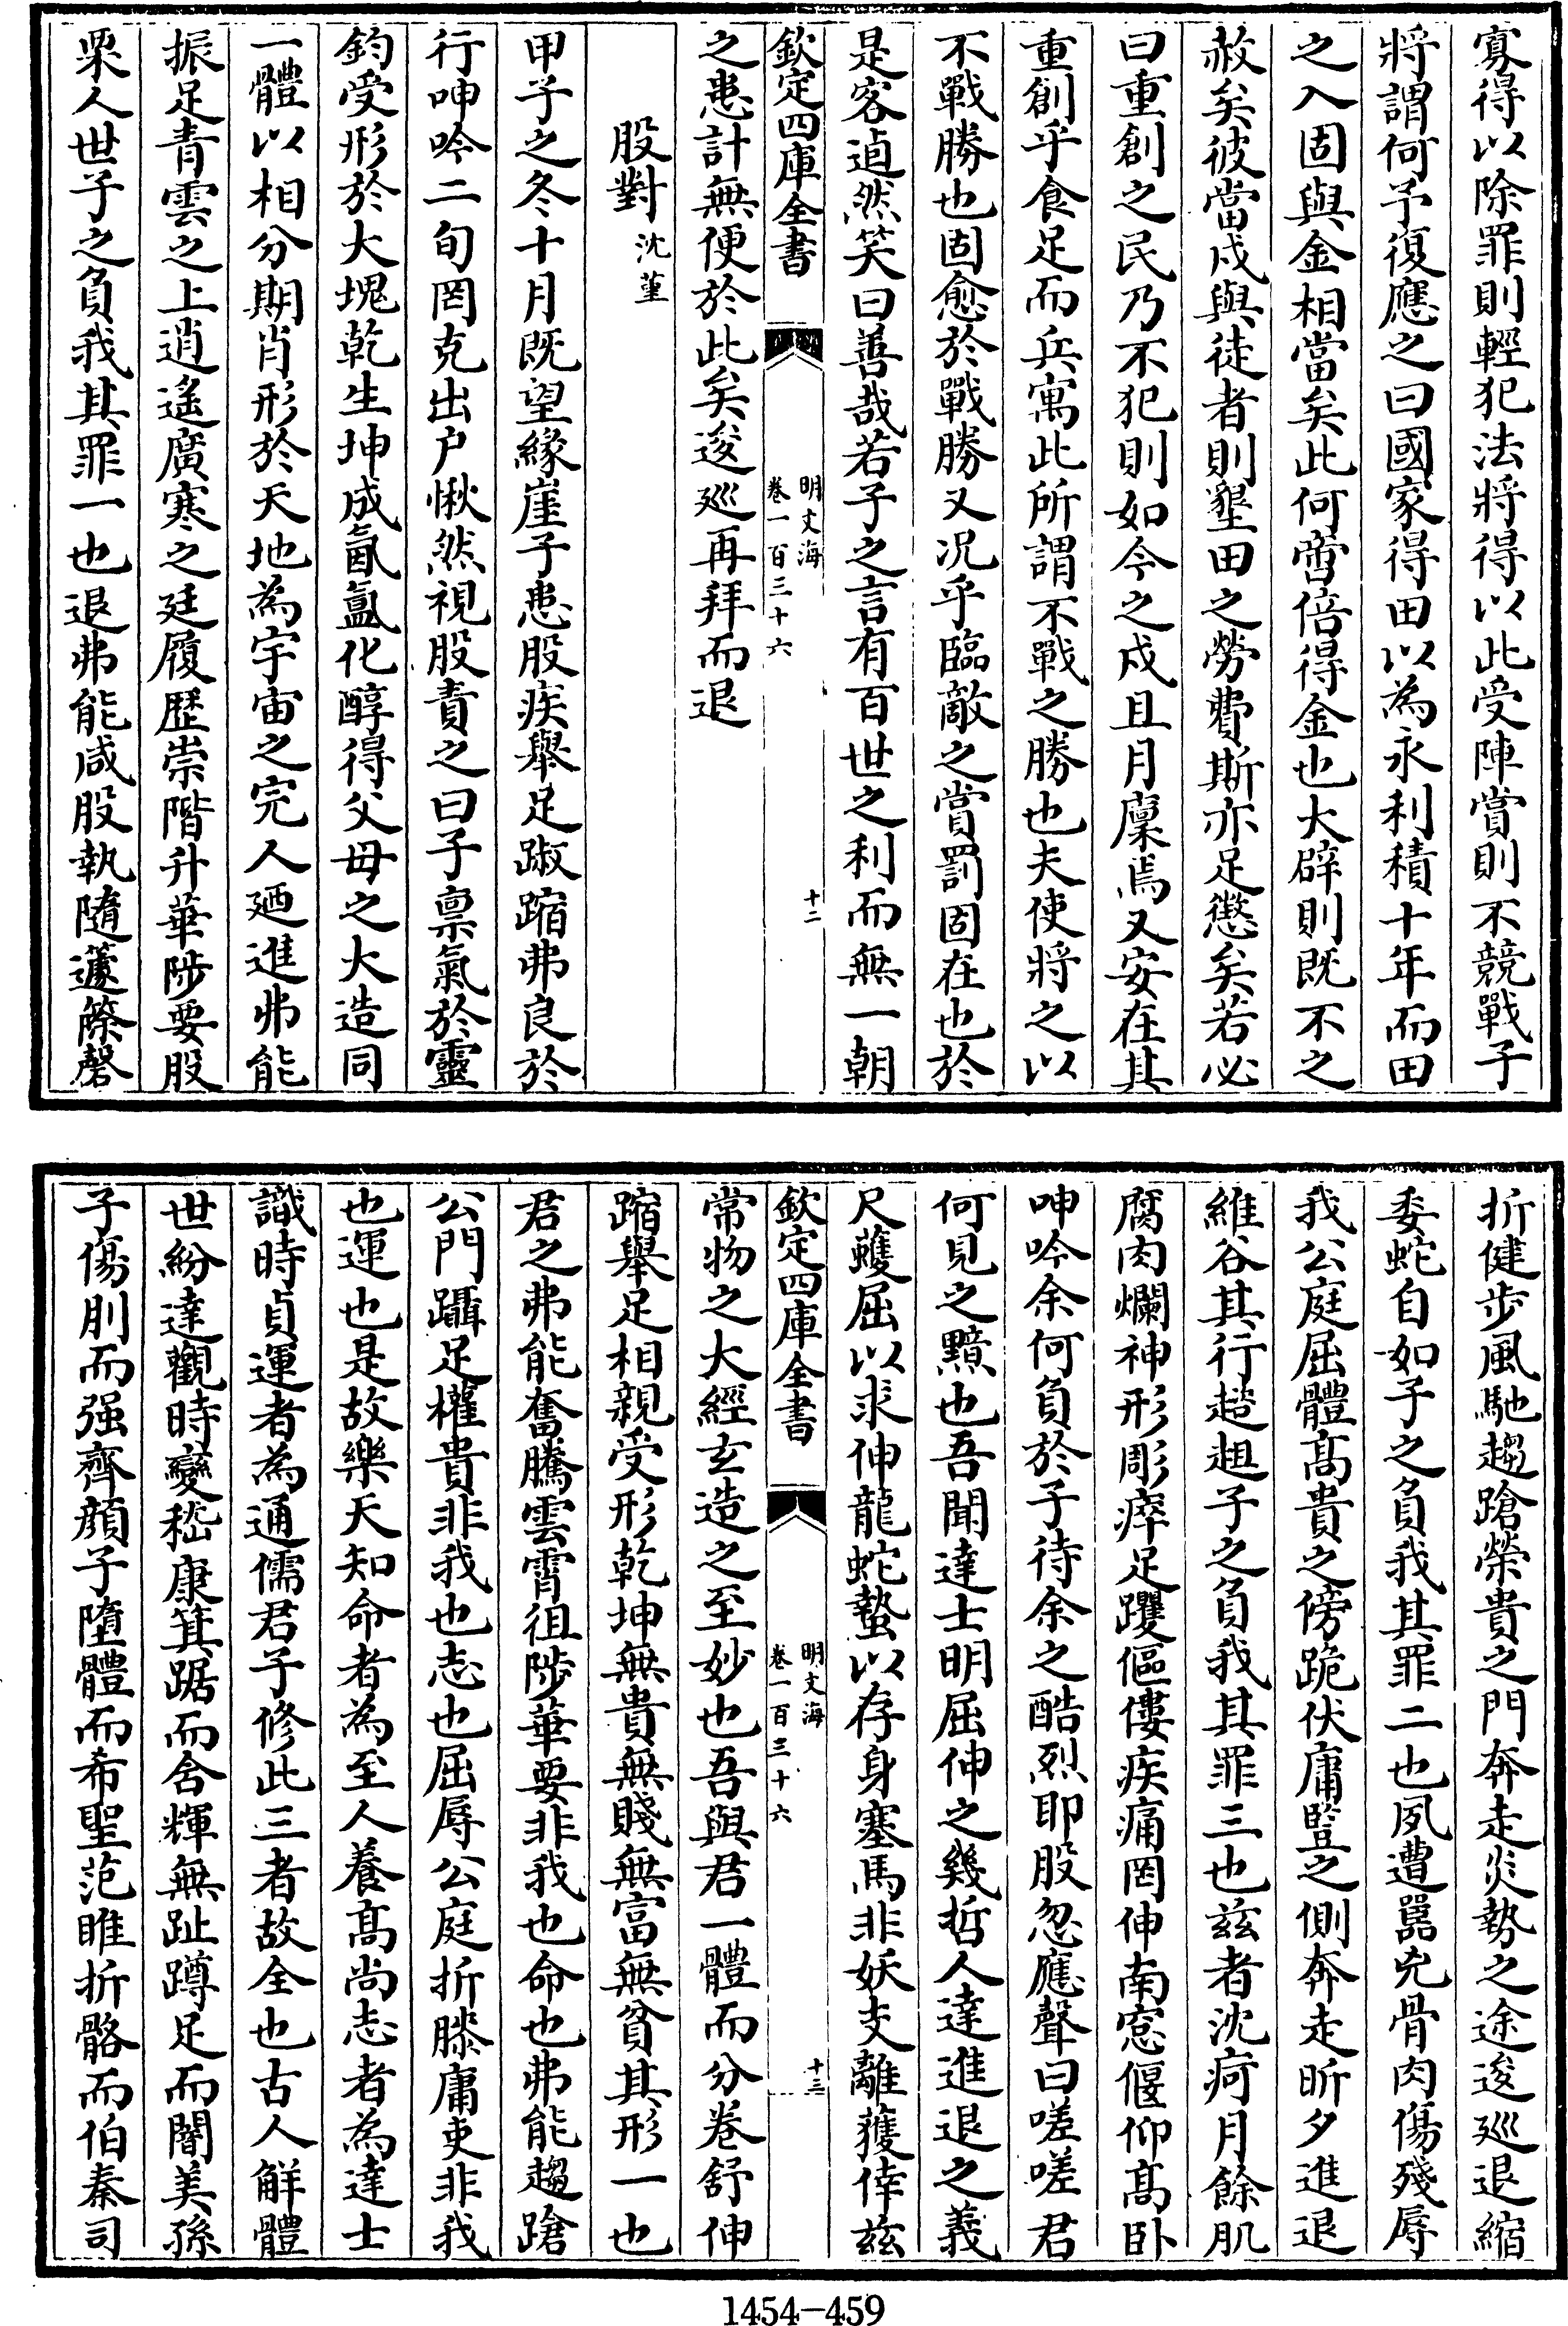 寡得以除罪則輕犯法將得以此受陣賞則不競戰子
將謂何予復應之曰國家得田以為永利積十年而田
之入固與金相當矣此何啻倍得金也大辟則既不之
赦矣彼當戍與徒者則墾田之勞費斯亦足懲矣若必
曰重創之民乃不犯則如今之戍且月廩焉又安在其
重創乎食足而兵寓此所謂不戰之勝也夫使將之以
不戰勝也固愈於戰勝又况乎臨敵之賞罰固在也於
是客逌然笑曰善哉若子之言有百世之利而無一朝
欽定四庫全書
明文海
卷一百三十六
十二
之患計無便於此矣逡廵再拜而退
股對 沈堇
甲子之冬十月既望緣崖子患股疾舉足踧踖弗良於
行呻吟二旬罔克出户愀然視股責之曰子禀氣於靈
鈞受形於大塊乾生坤成氤氲化醇得父母之大造同
一體以相分期肖形於天地為宇宙之完人廼進弗能
振足青雲之上逍遙廣寒之廷履歷崇階升華陟要股
栗人世子之負我其罪一也退弗能咸股執隨籧篨磬
折健步風馳趨蹌榮貴之門奔走炎勢之途逡廵退縮
委蛇自如子之負我其罪二也夙遭嚚兇骨肉傷殘辱
我公庭屈體髙貴之傍跪伏庸豎之側奔走昕夕進退
維谷其行趦趄子之負我其罪三也兹者沈疴月餘肌
腐肉爛神形彫瘁足躩傴僂疾痛罔伸南窓偃仰髙卧
呻吟余何負於子待余之酷烈耶股忽應聲曰嗟嗟君
何見之黭也吾聞達士明屈伸之幾哲人達進退之義
尺蠖屈以求伸龍蛇蟄以存身塞馬非妖支離獲倖兹
欽定四庫全書
明文海
卷一百三十六
十三
常物之大經玄造之至妙也吾與君一體而分卷舒伸
蹜舉足相親受形乾坤無貴無賤無富無貧其形一也
君之弗能奮騰雲霄徂陟華要非我也命也弗能趨蹌
公門躡足權貴非我也志也屈辱公庭折膝庸吏非我
也運也是故樂天知命者為至人養髙尚志者為達士
識時貞運者為通儒君子修此三者故全也古人觧體
世紛達觀時變嵇康箕踞而含輝無趾蹲足而闇美孫
子傷刖而强齊顔子墮體而希聖范睢折骼而伯秦司
1454-459